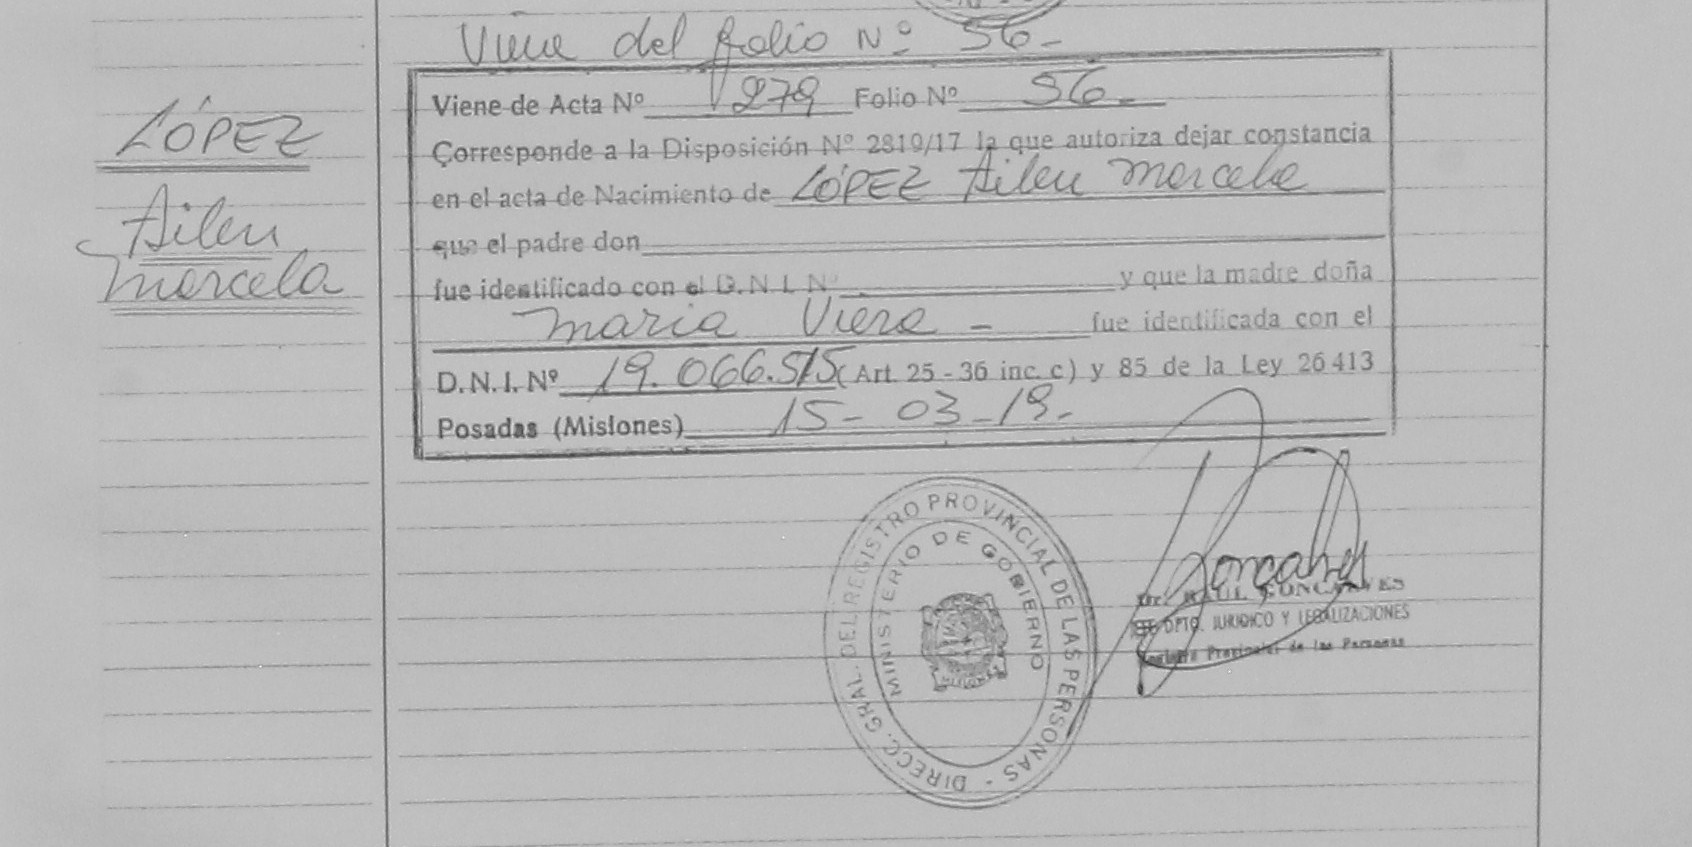 Viene del folio Nº 56-
Viene de Acta Nº 279 Folio Nº 56-
Corresponde a la Disposición Nº 2810/17 la que autoriza dejar constancia
en el acta de Nacimiento de LÓPEZ Ailen Marcela
que el padre don
fue identificado con el D.N.I. Nº y que la madre doña
Maria Viera - fue identificada con el
D.N.I. Nº 19.066.515 (Art. 25 - 36 inc. c) y 85 de la Ley 26413
Posadas (Misiones) 15-03-19-
LÓPEZ
Ailen
Marcela
DIRECC. GRAL. DEL REGISTRO PROVINCIAL DE LAS PERSONAS -
MINISTERIO DE GOBIERNO
MISIONES
GONCALVES
DPTO. JURIDICO Y LEGALIZACIONES
Provincial de las Personas